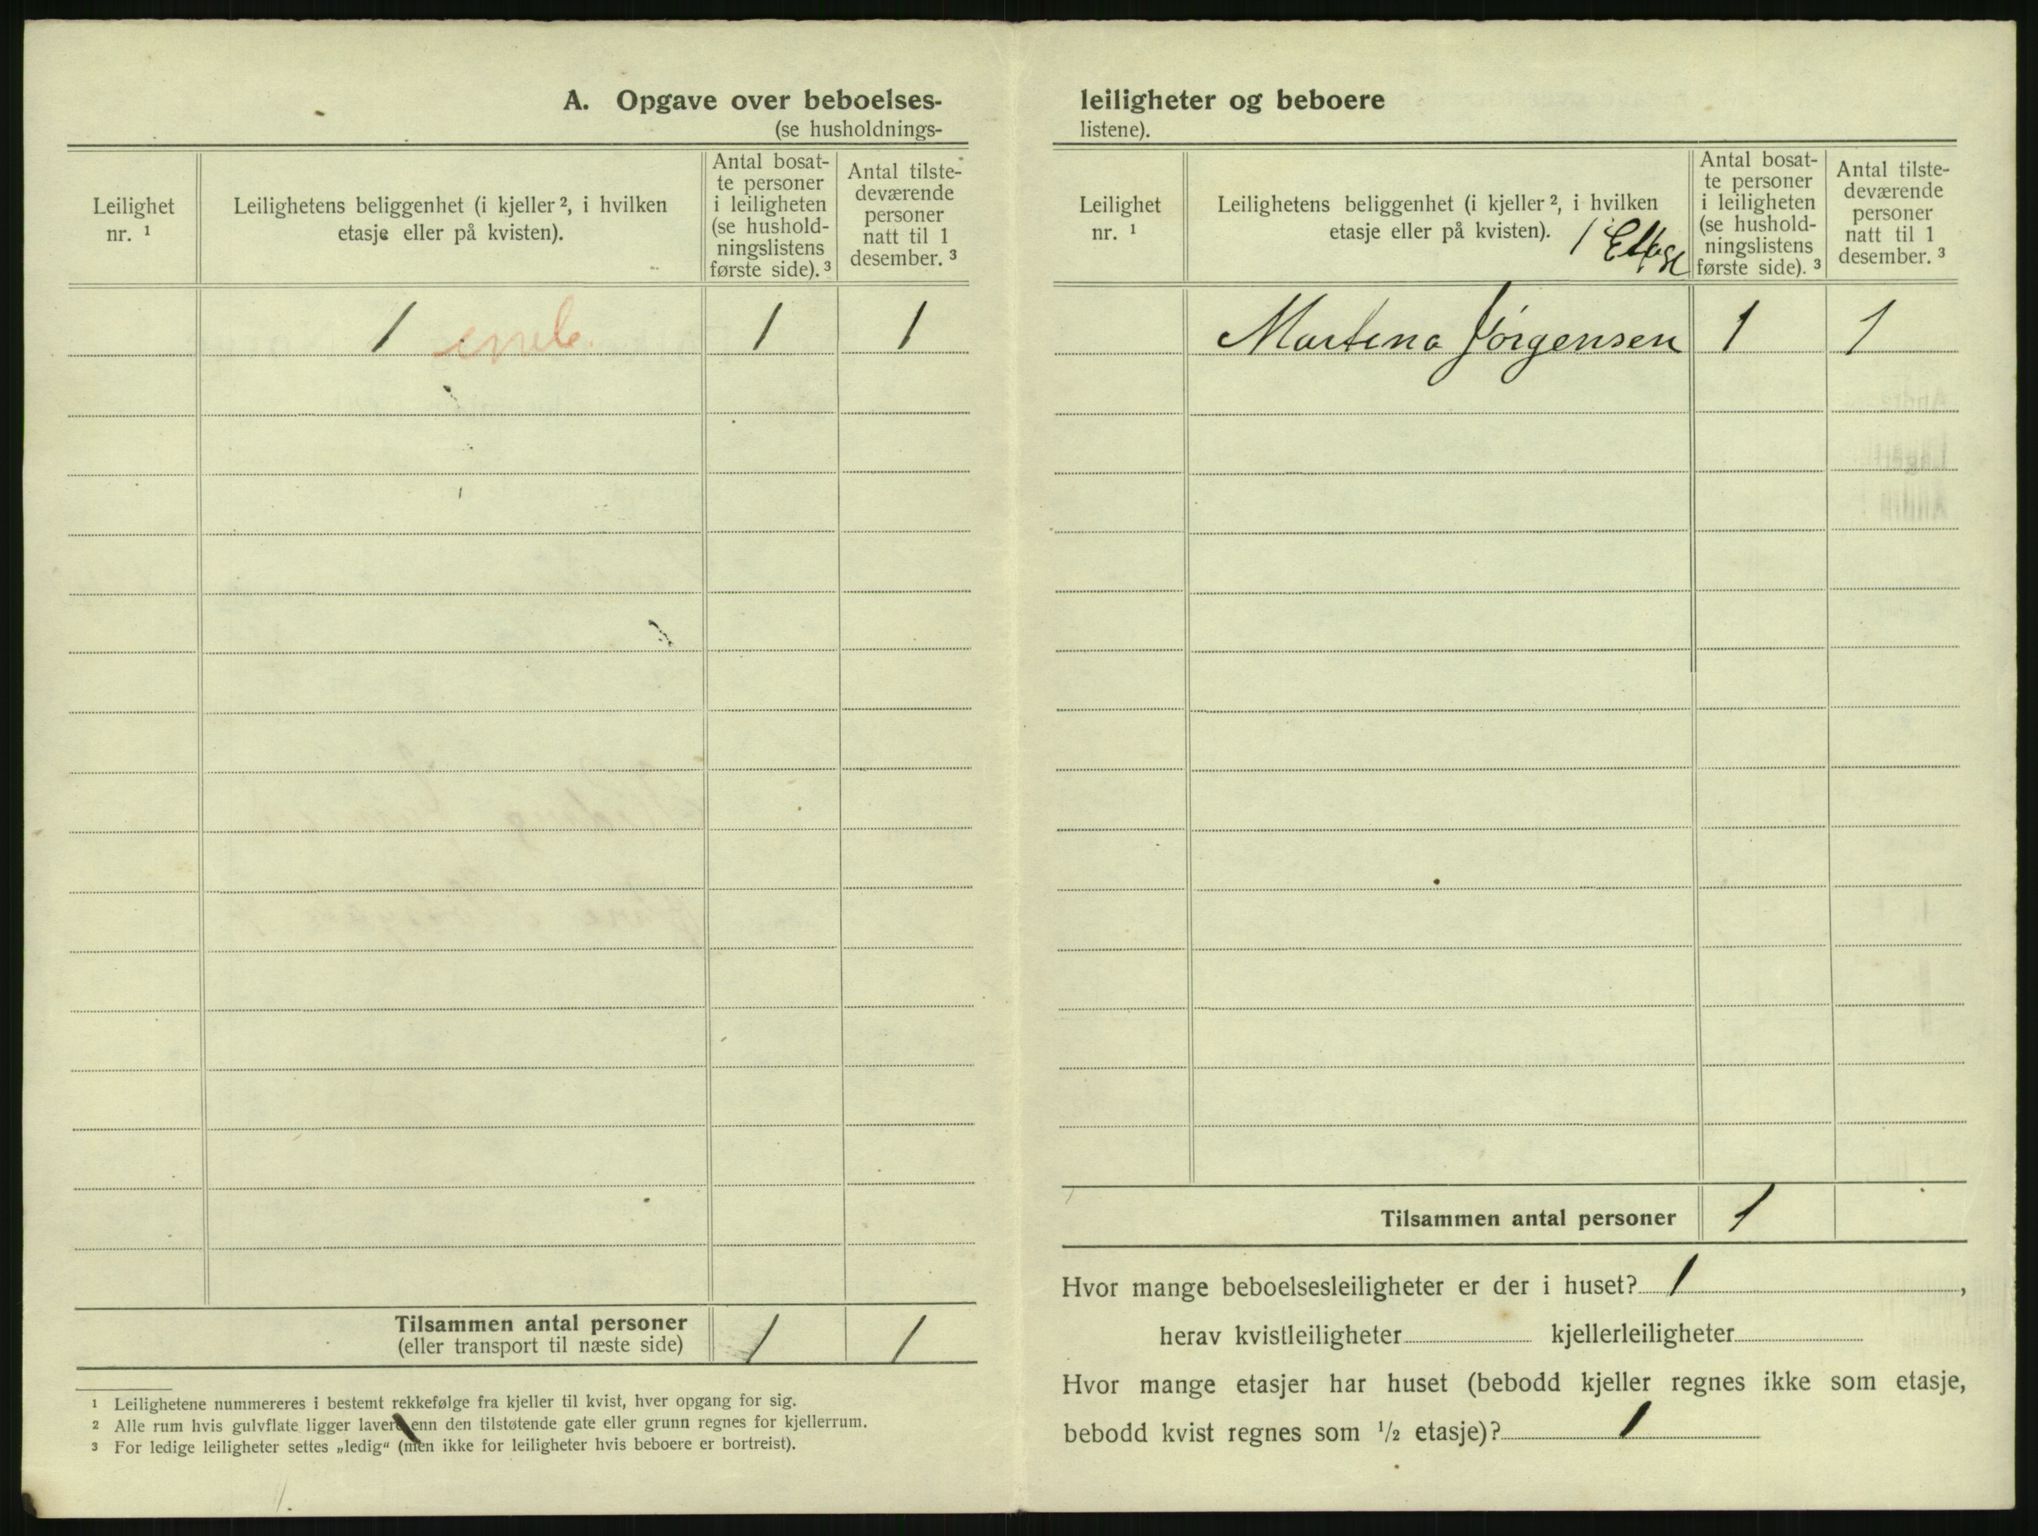 A. Opgave over beboelses-
(se husholdnings-
Leilighet
nr. 1
Leilighetens beliggenhet (i kjeller ², i hvilken
etasje eller på kvisten).
Antal bosat-
te personer
i leiligheten
(se hushold-
ningslistens
første side). ³
Antal tilste-
deværende
personer
natt til 1
desember. ³
1 1 1
Tilsammen antal personer
(eller transport til næste side)
1 1
¹ Leilighetene nummereres i bestemt rekkefølge fra kjeller til kvist, hver opgang for sig.
² Alle rum hvis gulvflate ligger lavere enn den tilstøtende gate eller grunn regnes for kjellerrum.
³ For ledige leiligheter settes „ledig“ (men ikke for leiligheter hvis beboere er bortreist).
leiligheter og beboere
listene).
Leilighet
nr. ¹
Leilighetens beliggenhet (i kjeller ², i hvilken
etasje eller på kvisten).
1 Etage
Antal bosat-
te personer
i leiligheten
(se hushold-
ningslistens
første side). ³
Antal tilste-
deværende
personer
natt til 1
desember. ³
Martena Jørgensen 1 1
Tilsammen antal personer 1
Hvor mange beboelsesleiligheter er der i huset? 1,
herav kvistleiligheter kjellerleiligheter
Hvor mange etasjer har huset (bebodd kjeller regnes ikke som etasje,
bebodd kvist regnes som ½ etasje)? 1